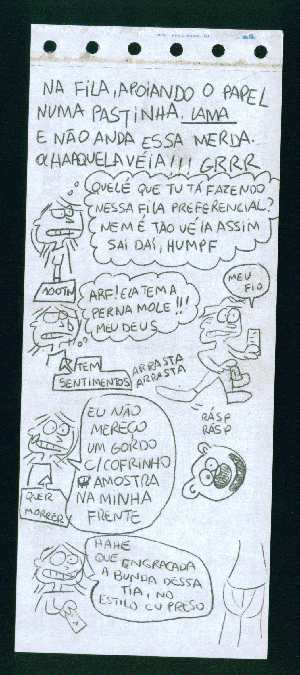 NA FILA, APOIANDO O PAPEL
NUMA PASTINHA. LAMA
E NÃO ANDA ESSA MERDA.
OLHA AQUELA VÉIA!!! GRRR
QUELÉ QUE TU TÁ FAZENDO
NESSA FILA PREFERENCIAL?
NEM É TÃO VÉIA ASSIM
SAI DAÍ, HUMPF
ARF! ELA TEM A
PERNA MOLE!!!
MEU DEUS
MEU
FIO
TEM
SENTIMENTOS
ARRASTA
ARRASTA
EU NÃO
MEREÇO
UM GORDO
C/ COFRINHO
AMOSTRA
NA MINHA
FRENTE
QUER
MORRER
RÁSP
RÁSP
HAHE
QUE ENGRAÇADA
A BUNDA DESSA
TIA, NO
ESTILO CU PRESO